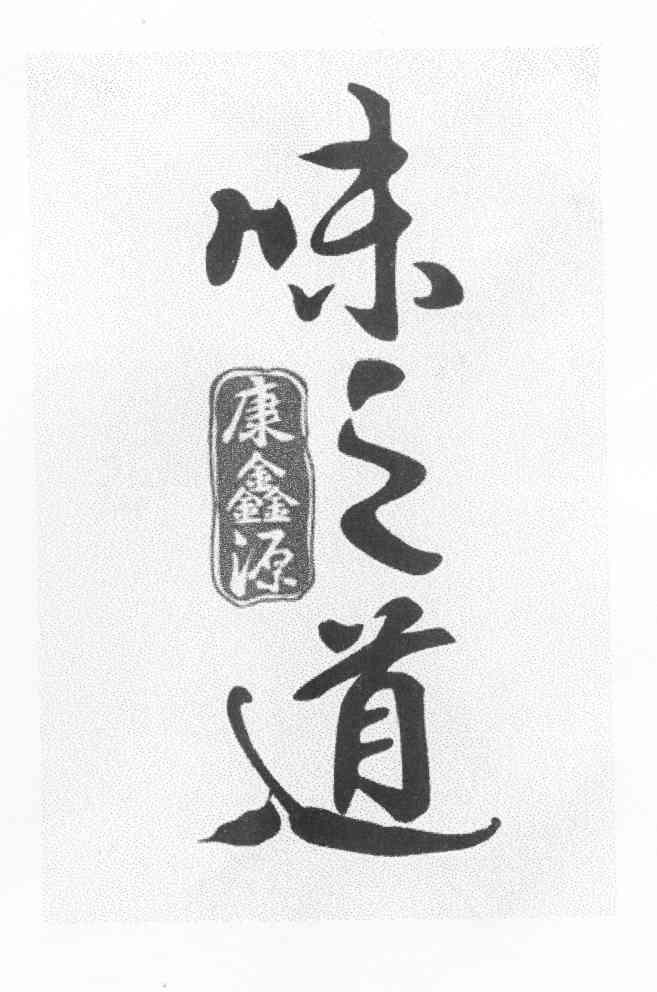 味之道
康鑫源